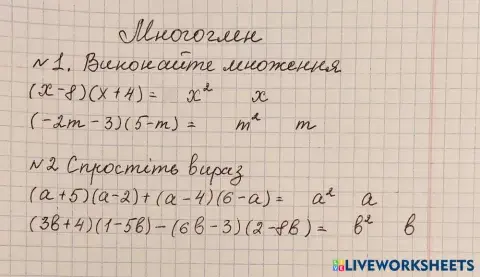 Многоглен
№1. Виконайте множення
(x-8)(x+4)= x² x
(-2m-3)(5-m)= m² m
№2 Спростіть вираз
(a+5)(a-2)+(a-4)(6-a)= a² a
(3в+4)(1-5в)-(6в-3)(2-8в)= в² в
LIVEWORKSHEETS